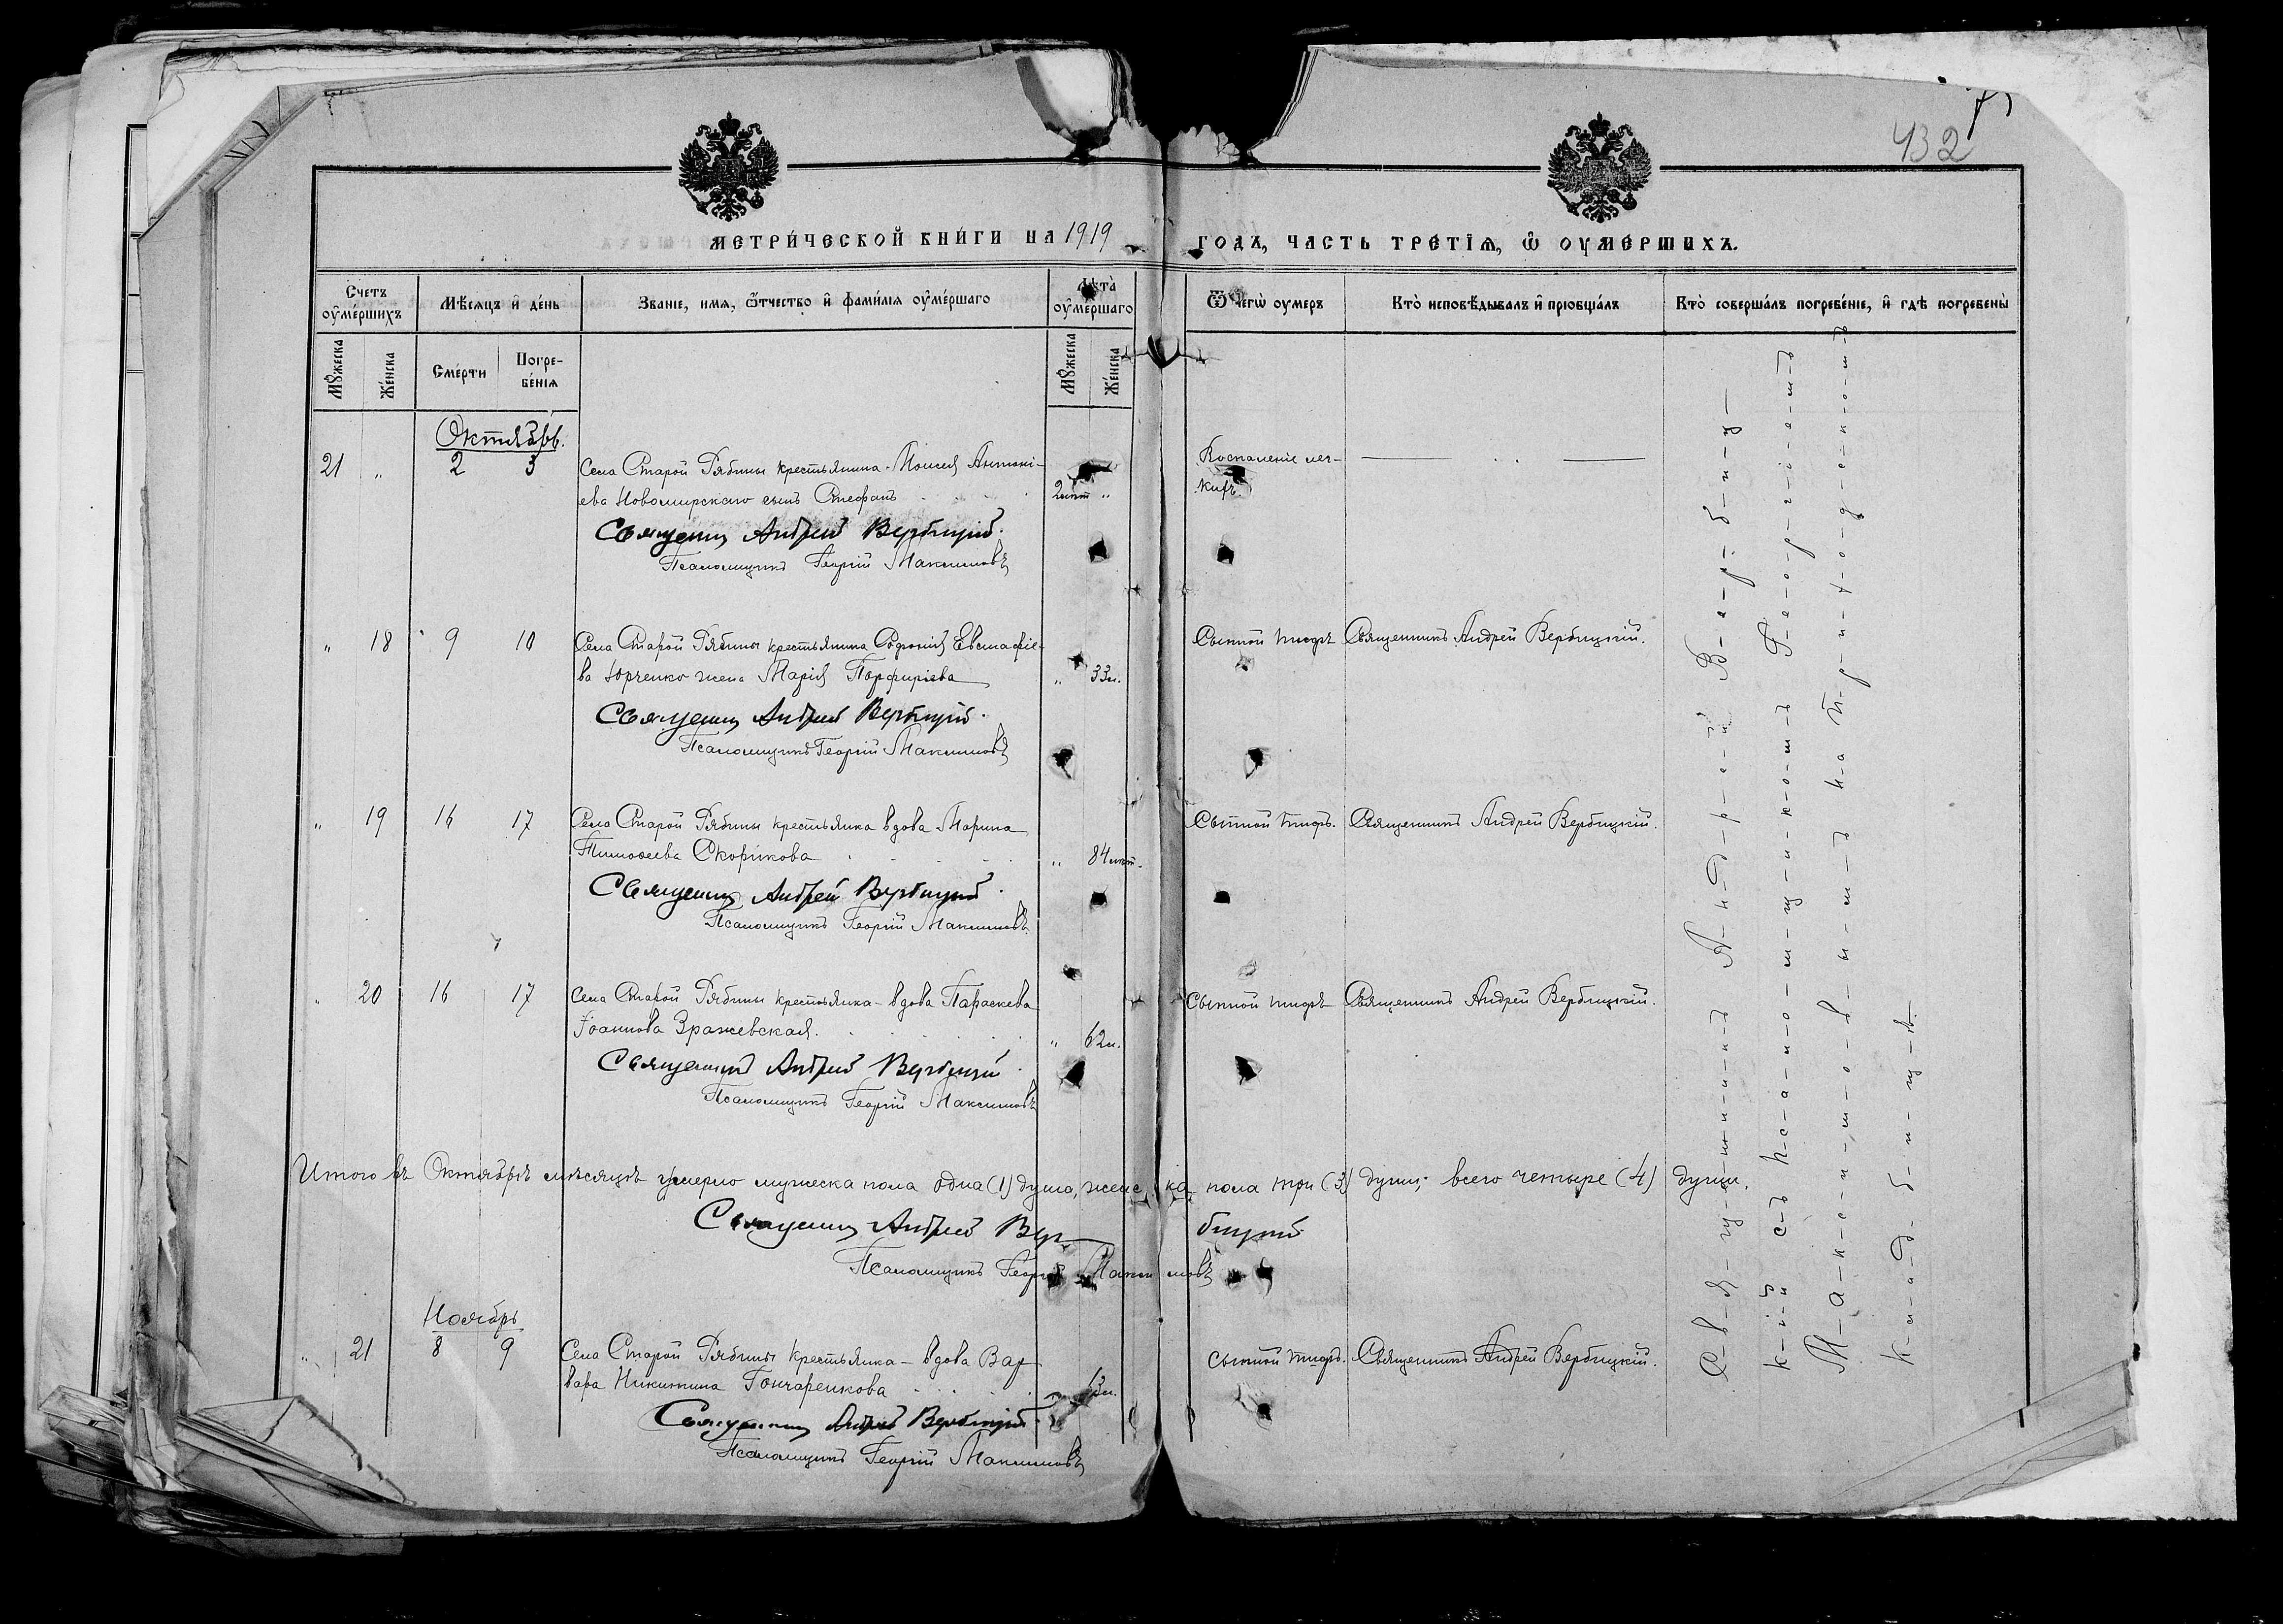 432
МЕТРИ́ЧЕСКОЙ КНИ́ГИ НА 1919
ГОДЪ, ЧАСТЬ ТРЕ́ТІѦ, Ѡ ОУМЕ́РШИХЪ.
Счетъ оумершихъ
Мѣсяцъ и день
Званіе, имя, ѿчество и фамилія оумершаго
Лѣта оумершаго
Ѿ чегѡ оумеръ
Кто исповѣдывалъ и пріобщалъ
Кто совершалъ погребеніе, и гдѣ погребены
Мужеска
Женска
Смерти
Погребенія
Мужеска
Женска
Октябрь.
21 „ 2 3 Села Старой Рябины крестьянина Моисея Антоні-
ева Новомирскаго сынъ Стефанъ 2 лѣт „
Воспаленіе лег-
кихъ.
Священникъ Андрей Вербицкій.
Псаломщикъ Георгій Максимовъ
„ 18 9 10 Села Старой Рябины крестьянина Софронія Евстафіе-
ва Юрченко жена Марія Порфиріева „ 33 л.
Сыпной тифъ Священникъ Андрей Вербицкій.
Священникъ Андрей Вербицкій.
Псаломщикъ Георгій Максимовъ
„ 19 16 17 Села Старой Рябины крестьянка вдова Марина
Тимофеева Скорикова „ 84 лѣт.
Сыпной тифъ. Священникъ Андрей Вербицкій.
Священникъ Андрей Вербицкій.
Псаломщикъ Георгій Максимовъ.
„ 20 16 17 Села Старой Рябины крестьянка - вдова Параскева
Іоаннова Зражевская. „ 62 л.
Сыпной тифъ Священникъ Андрей Вербицкій.
Священникъ Андрей Вербицкій.
Псаломщикъ Георгій Максимовъ
Итого въ Октябрѣ мѣсяцѣ умерло мужеска пола одна (1) душа, женска пола три (3) души; всего четыре (4) души.
Священникъ Андрей Вербицкій.
Псаломщикъ Георгій Максимовъ
Ноябрь
„ 21 8 9 Села Старой Рябины крестьянка - вдова Вар-
вара Никитина Гончаренкова
Сыпной тифъ. Священникъ Андрей Вербицкій.
Священникъ Андрей Вербицкій.
Псаломщикъ Георгій Максимовъ
Священникъ Андрей Вербиц-
кій съ псаломщикомъ Георгіемъ
Максимовымъ на приходскомъ
кладбищѣ.